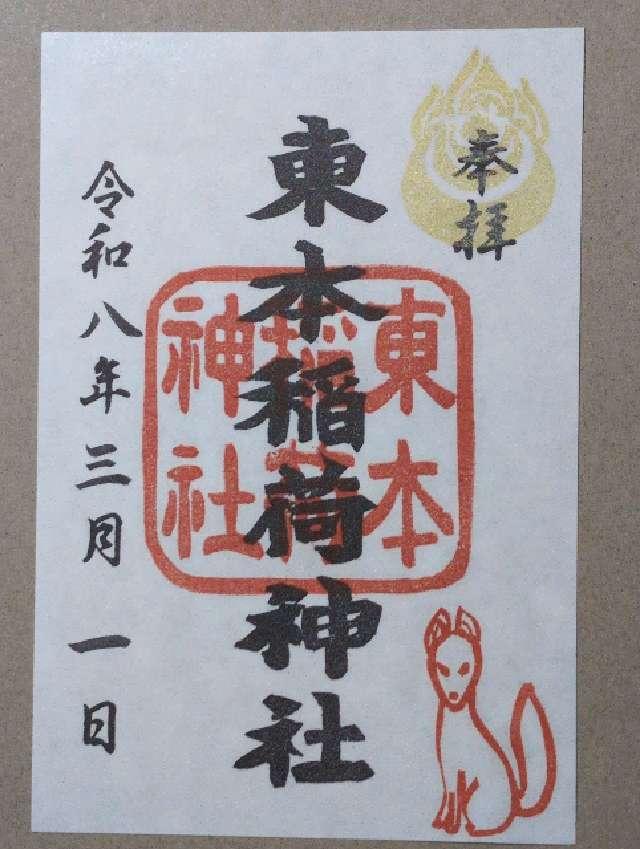 奉拝
東本稲荷神社
東本
稲荷
神社
令和八年三月一日